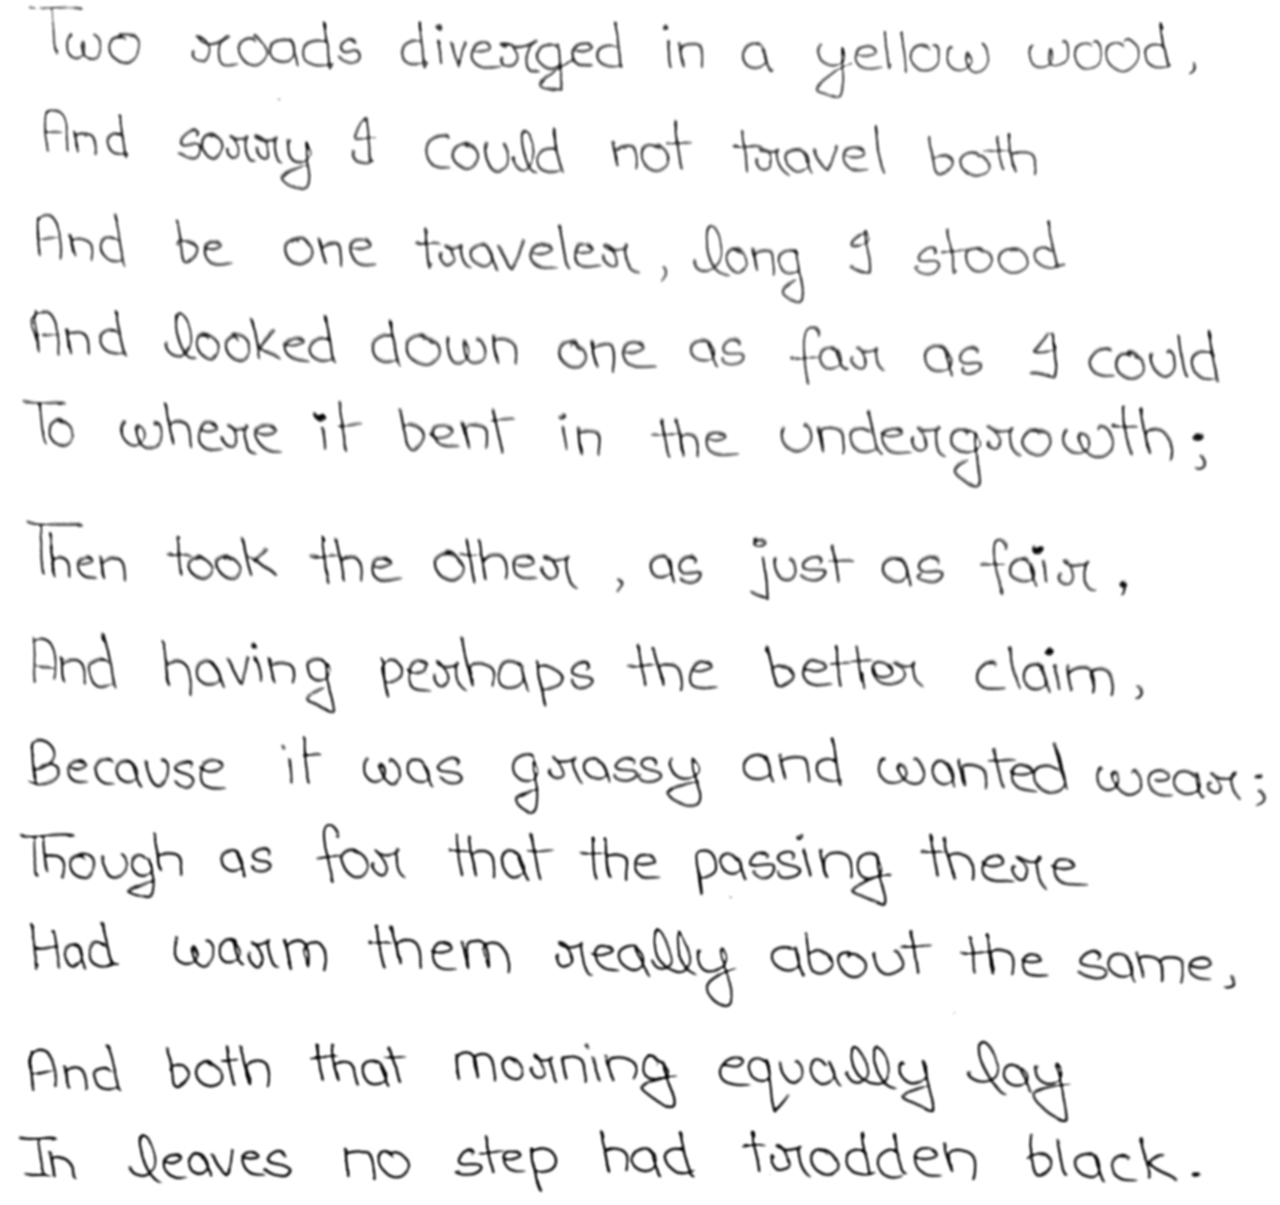 Two roads diverged in a yellow wood,
And sorry I could not travel both
And be one traveler, long I stood
And looked down one as far as I could
To where it bent in the undergrowth;
Then took the other, as just as fair.
And having perhaps the better claim,
Because it was grassy and wanted wear;
Though as for that the passing there
Had warm them really about the same,
And both that morning equally lay
In leaves no step had trodden black.